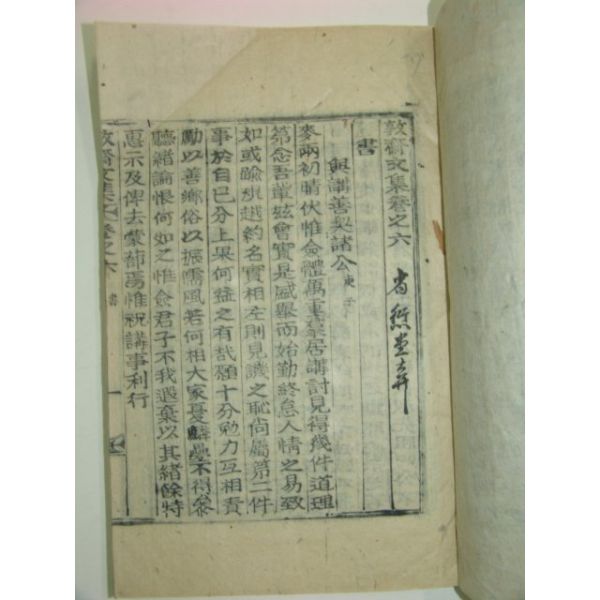 敦齋文集卷之六
書
與講善契諸公 庚子
麥兩初晴伏惟僉體萬重羣居講討見得幾件道理
第念吾輩玆會實是盛擧而始勤終怠人情之易致
如或踰規越約名實相左則見譏之恥尙屬第二件
事於自己分上果何益之有哉願十分勉力互相責
勵以善鄕俗以振儒風若何相大家憂麟疊不得參
聽緖論恨何如之惟僉君子不我遐棄以其緖餘特
惠示及俾去蒙蔀焉惟祝講事利行
敦齋文集 卷之六 書 一